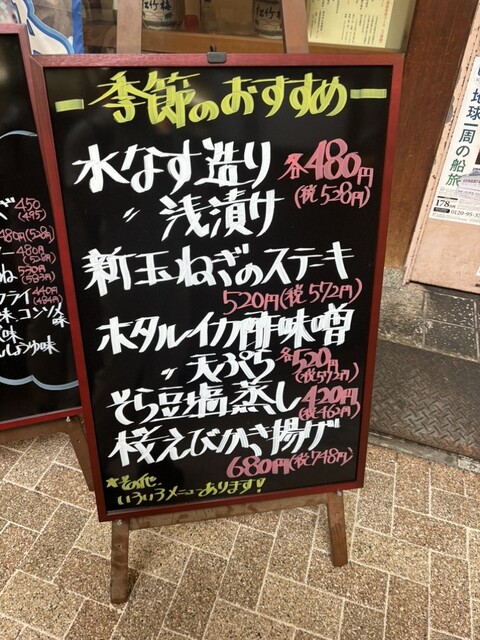 ー季節のおすすめー
水なす造り 各480円
(税528円)
〃 浅漬け
新玉ねぎのステーキ
520円(税572円)
ホタルイカ酢味噌
〃 天ぷら 各520円
(税572円)
そら豆塩蒸し 420円
(税462円)
桜えびかき揚げ
680円(税748円)
*その他
いろいろメニューあります!
450
(495)
480円(528円)
480円
(528円)
530円
(583円)
フライ 440円
(484円)
味、コンソメ
味
しょうゆ味
松竹梅
地球一周の船旅
178万円
0120-95-